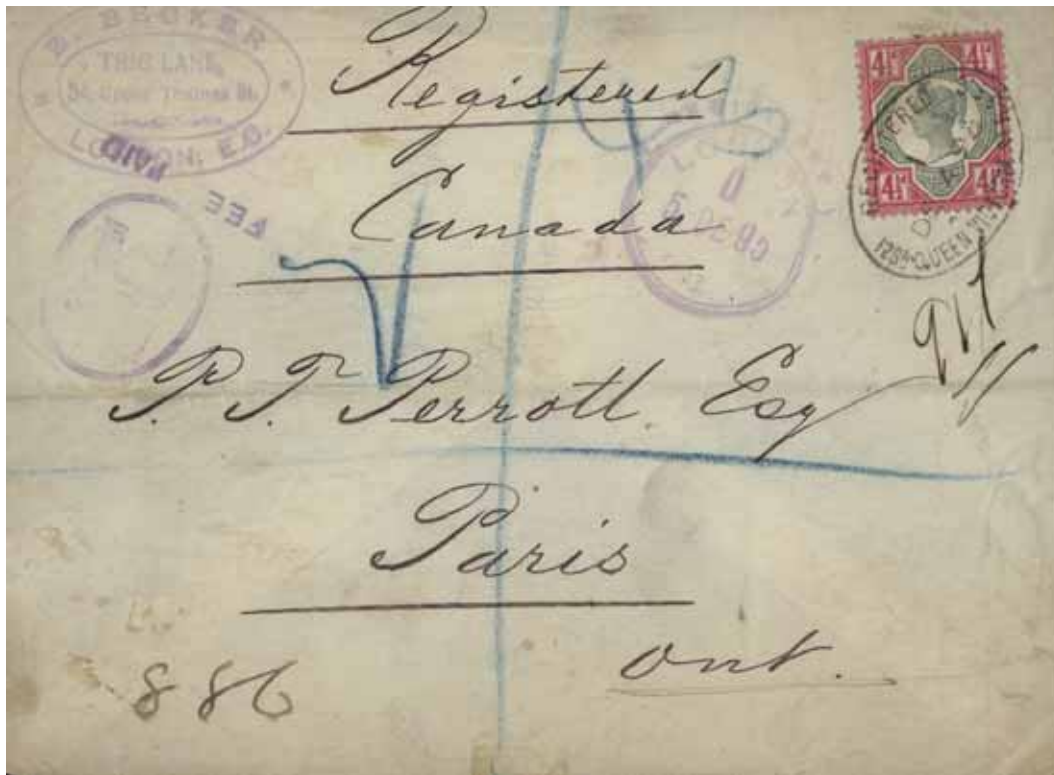 B. BECKER
TRIG LANE,
34, Upper Thames St.
LONDON, E.C.
FEE PAID
Registered
Canada
P. T. Perrott. Esq
Paris
Ont.
886
4½ᵈ 4½ᵈ
4½ᵈ 4½ᵈ
REGISTERED
QUEEN VICTORIA
U
5 DE 93